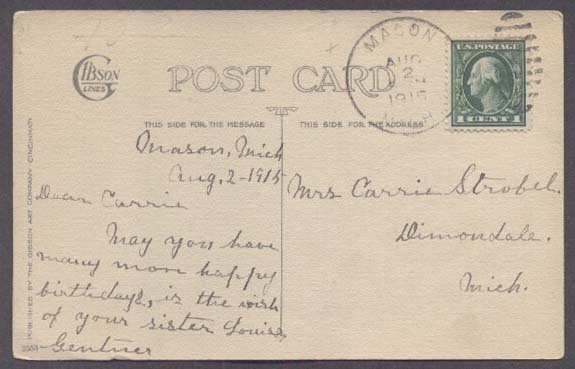 GIBSON
LINES
POST CARD
MASON
AUG
2
1915
MICH
U.S. POSTAGE
1 CENT 1
THIS SIDE FOR THE MESSAGE
THIS SIDE FOR THE ADDRESS
Mason, Mich
Aug, 2-1915
Dear Carrie
May you have
many mor happy
birthdays, is the wish
of your sister Louise
Gentner
Mrs Carrie Strobel.
Dimondale.
Mich.
PUBLISHED BY THE GIBSON ART COMPANY CINCINNATI